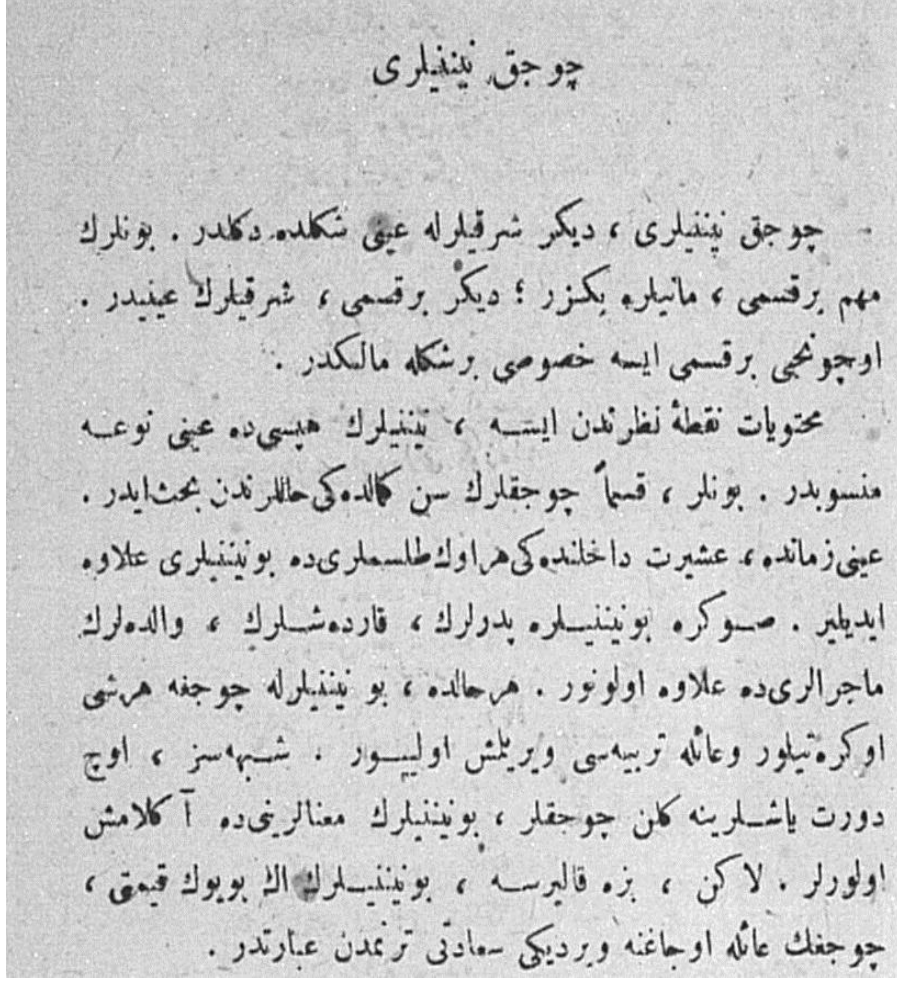 چوجق نینیلری
چوجق نینیلری ، دیكر شرقیلرله عینی شكلده دكلدر . بونلرك
مهم برقسمی ، مانیلره بكزر ؛ دیكر برقسمی ، شرقیلرك عینیدر .
اوچونجی برقسمی ایسه خصوصی برشكله مالكدر .
محتویات نقطهٔ نظرندن ایسه ، نینیلرك هپسی ده عینی نوعه
منسوبدر . بونلر ، قسماً چوجقلرك سن كمالده كی حاللرندن بحث ایدر .
عینی زمانده ، عشیرت داخلنده كی هر اوك طلسملری ده بو نینیلری علاوه
ایدیلیر . صوكره بونینیلره پدرلرك ، قارده شلرك ، والده لرك
ماجرالری ده علاوه اولونور . هرحالده ، بو نینیلرله چوجغه هرشی
اوكره تیلور وعائله تربیه سی ویریلمش اولییور . شبهه سز ، اوچ
دورت یاشلرینه كلن چوجقلر ، بونینیلرك معنالرینی ده آكلامش
اولورلر . لاكن ، بزه قالیرسه ، بونینیلرك اڭ بویوك قیمتی ،
چوجغك عائله اوجاغنه ویردیكی سعادتی ترنمدن عبارتدر .